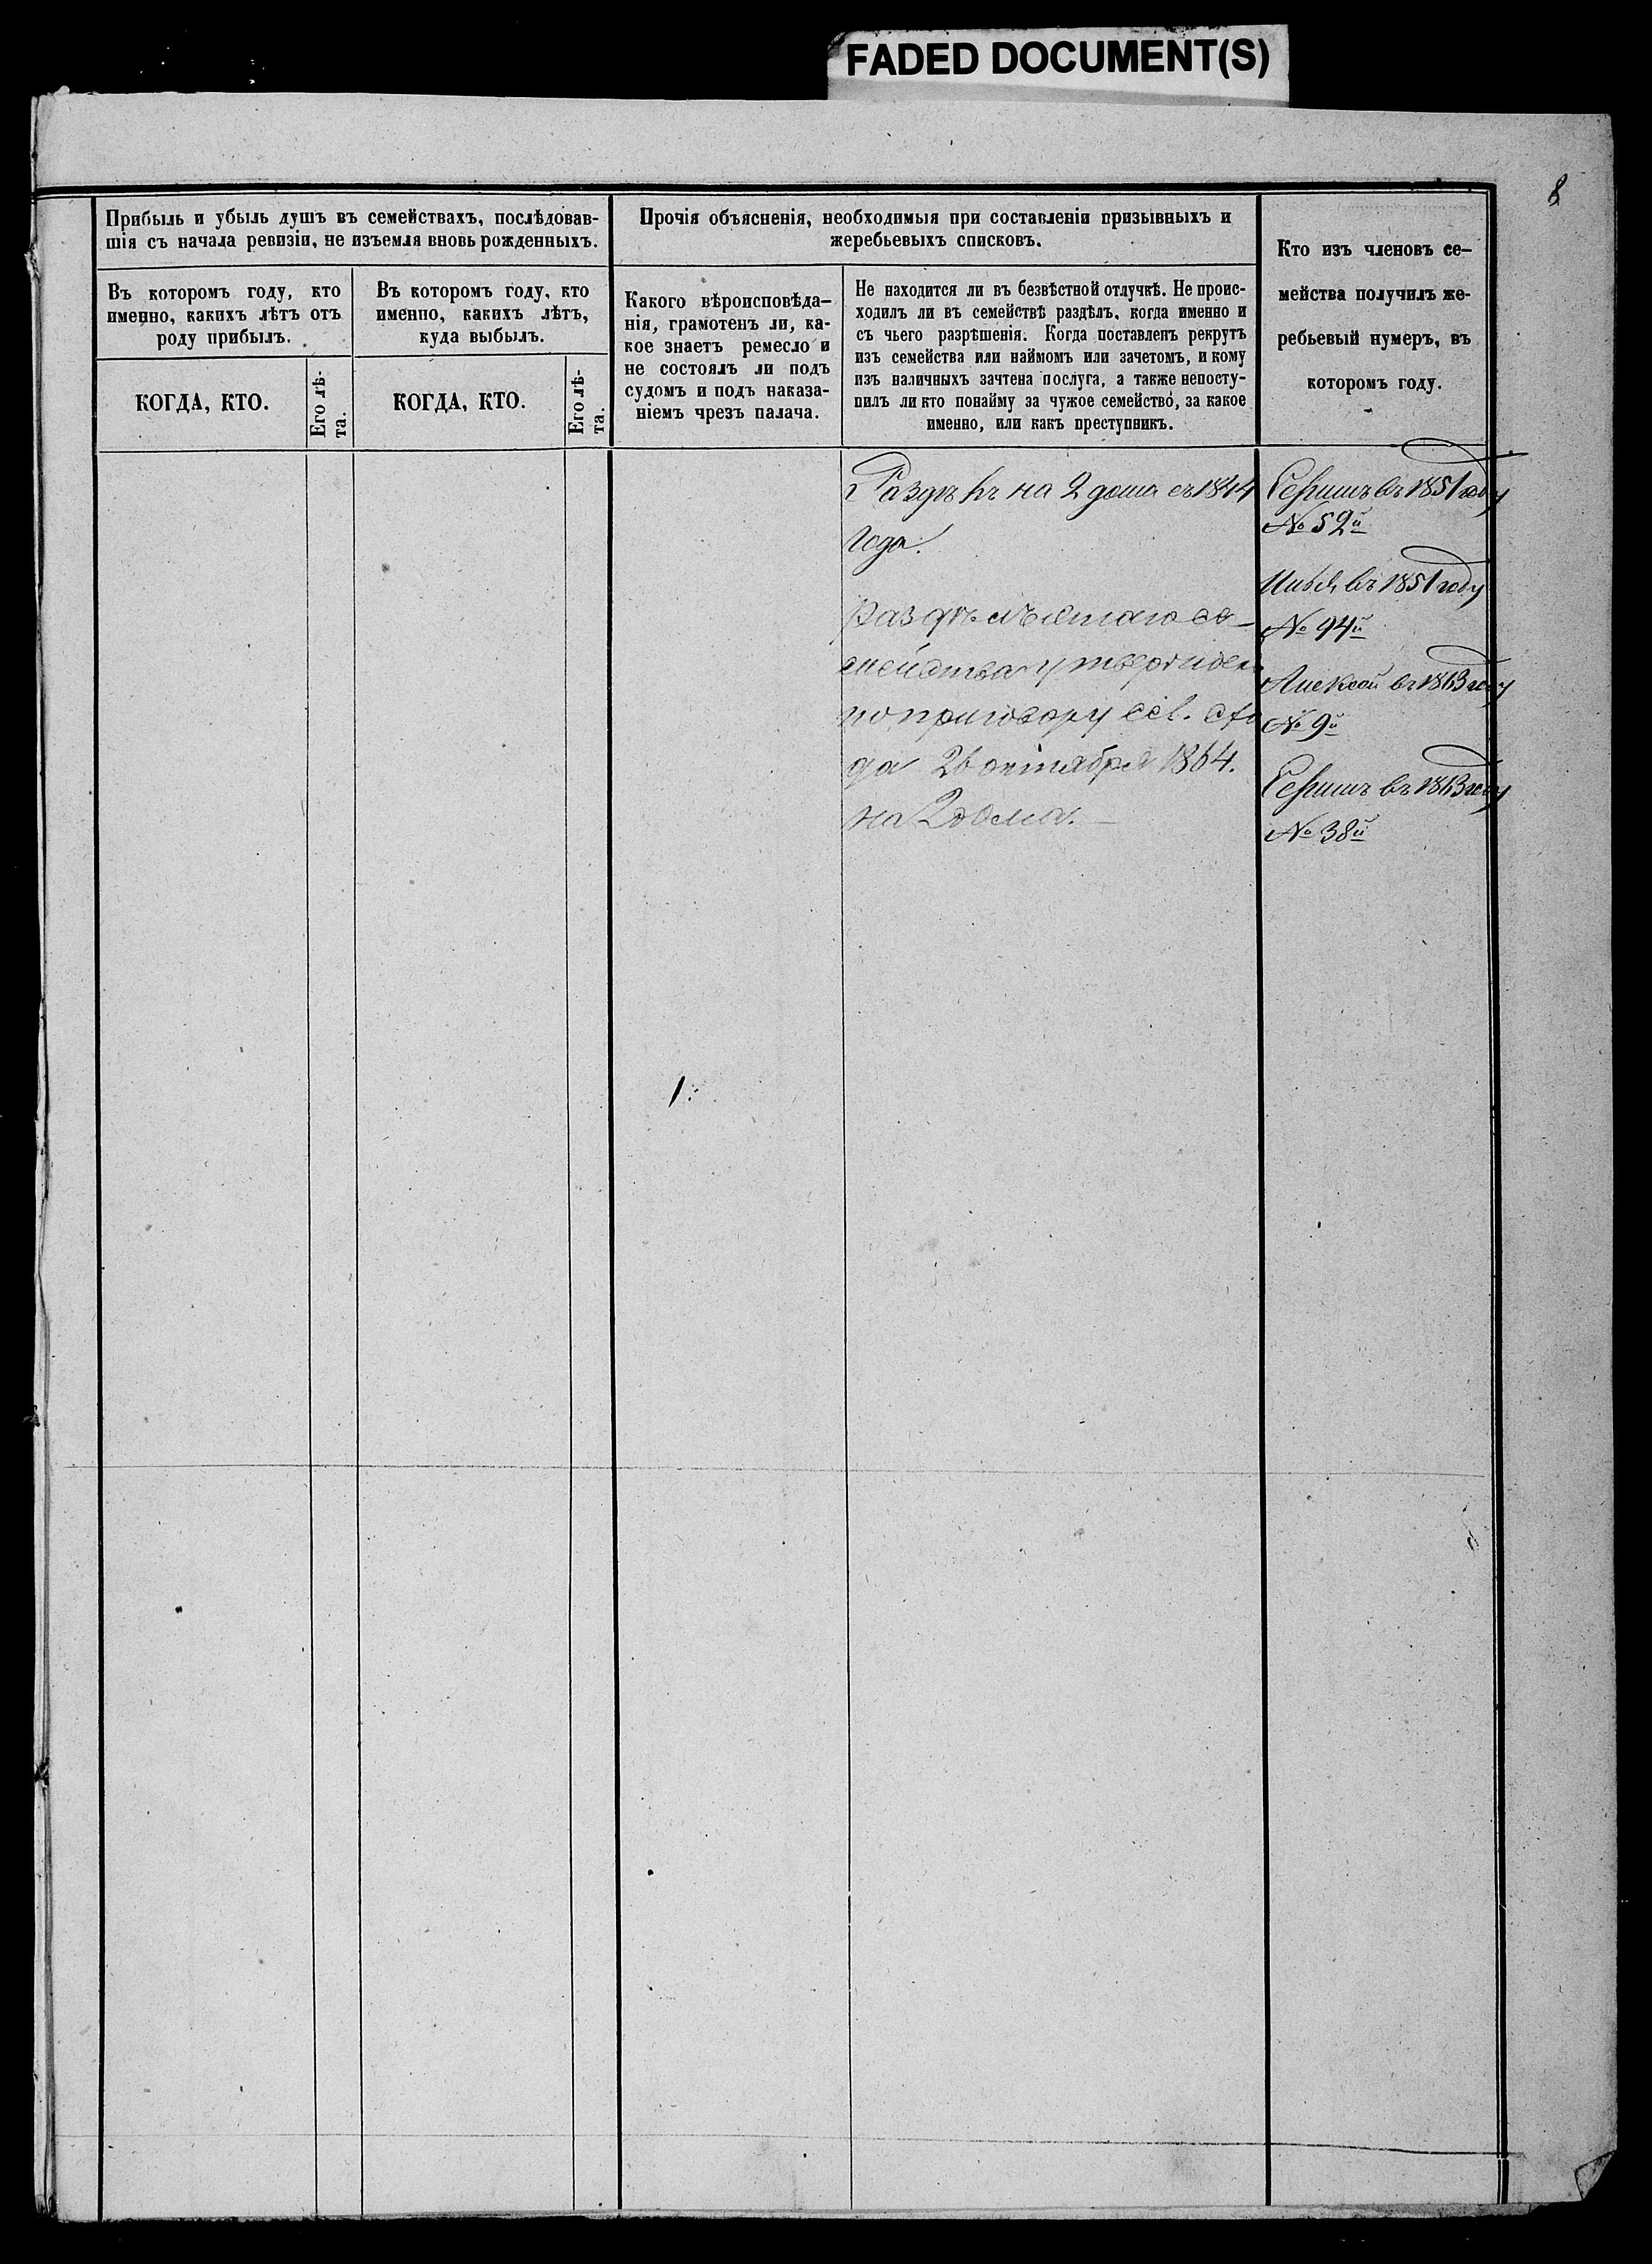 FADED DOCUMENT(S)
8
Прибыль и убыль душъ въ семействахъ, послѣдовав-
шія съ начала ревизіи, не изъемля вновь рожденныхъ.
Въ которомъ году, кто
именно, какихъ лѣтъ отъ
роду прибылъ.
КОГДА, КТО.
Его лѣ-
та.
Въ которомъ году, кто
именно, какихъ лѣтъ,
куда выбылъ.
КОГДА, КТО.
Его лѣ-
та.
Прочія объясненія, необходимыя при составленіи призывныхъ и
жеребьевыхъ списковъ.
Какого вѣроисповѣда-
нія, грамотенъ ли, ка-
кое знаетъ ремесло и
не состоялъ ли подъ
судомъ и подъ наказа-
ніемъ чрезъ палача.
Не находится ли въ безвѣстной отлучкѣ. Не проис-
ходилъ ли въ семействѣ раздѣлъ, когда именно и
съ чьего разрѣшенія. Когда поставленъ рекрутъ
изъ семейства или наймомъ или зачетомъ, и кому
изъ наличныхъ зачтена послуга, а также непосту-
пилъ ли кто понайму за чужое семейство, за какое
именно, или какъ преступникъ.
Кто изъ членовъ се-
мейства получилъ же-
ребьевый нумеръ, въ
которомъ году.
на 2 дома съ 1844
года.
Раздѣлъ этаго се-
мейства утвержден
по приговору сел. схо
да 26 октября 1864.
на 2 дома. —
въ 1851 году
№ 52й
въ 1851 году
№ 94й
Алексѣй въ 1863 году
№ 9й
въ 1863 году
№ 38й